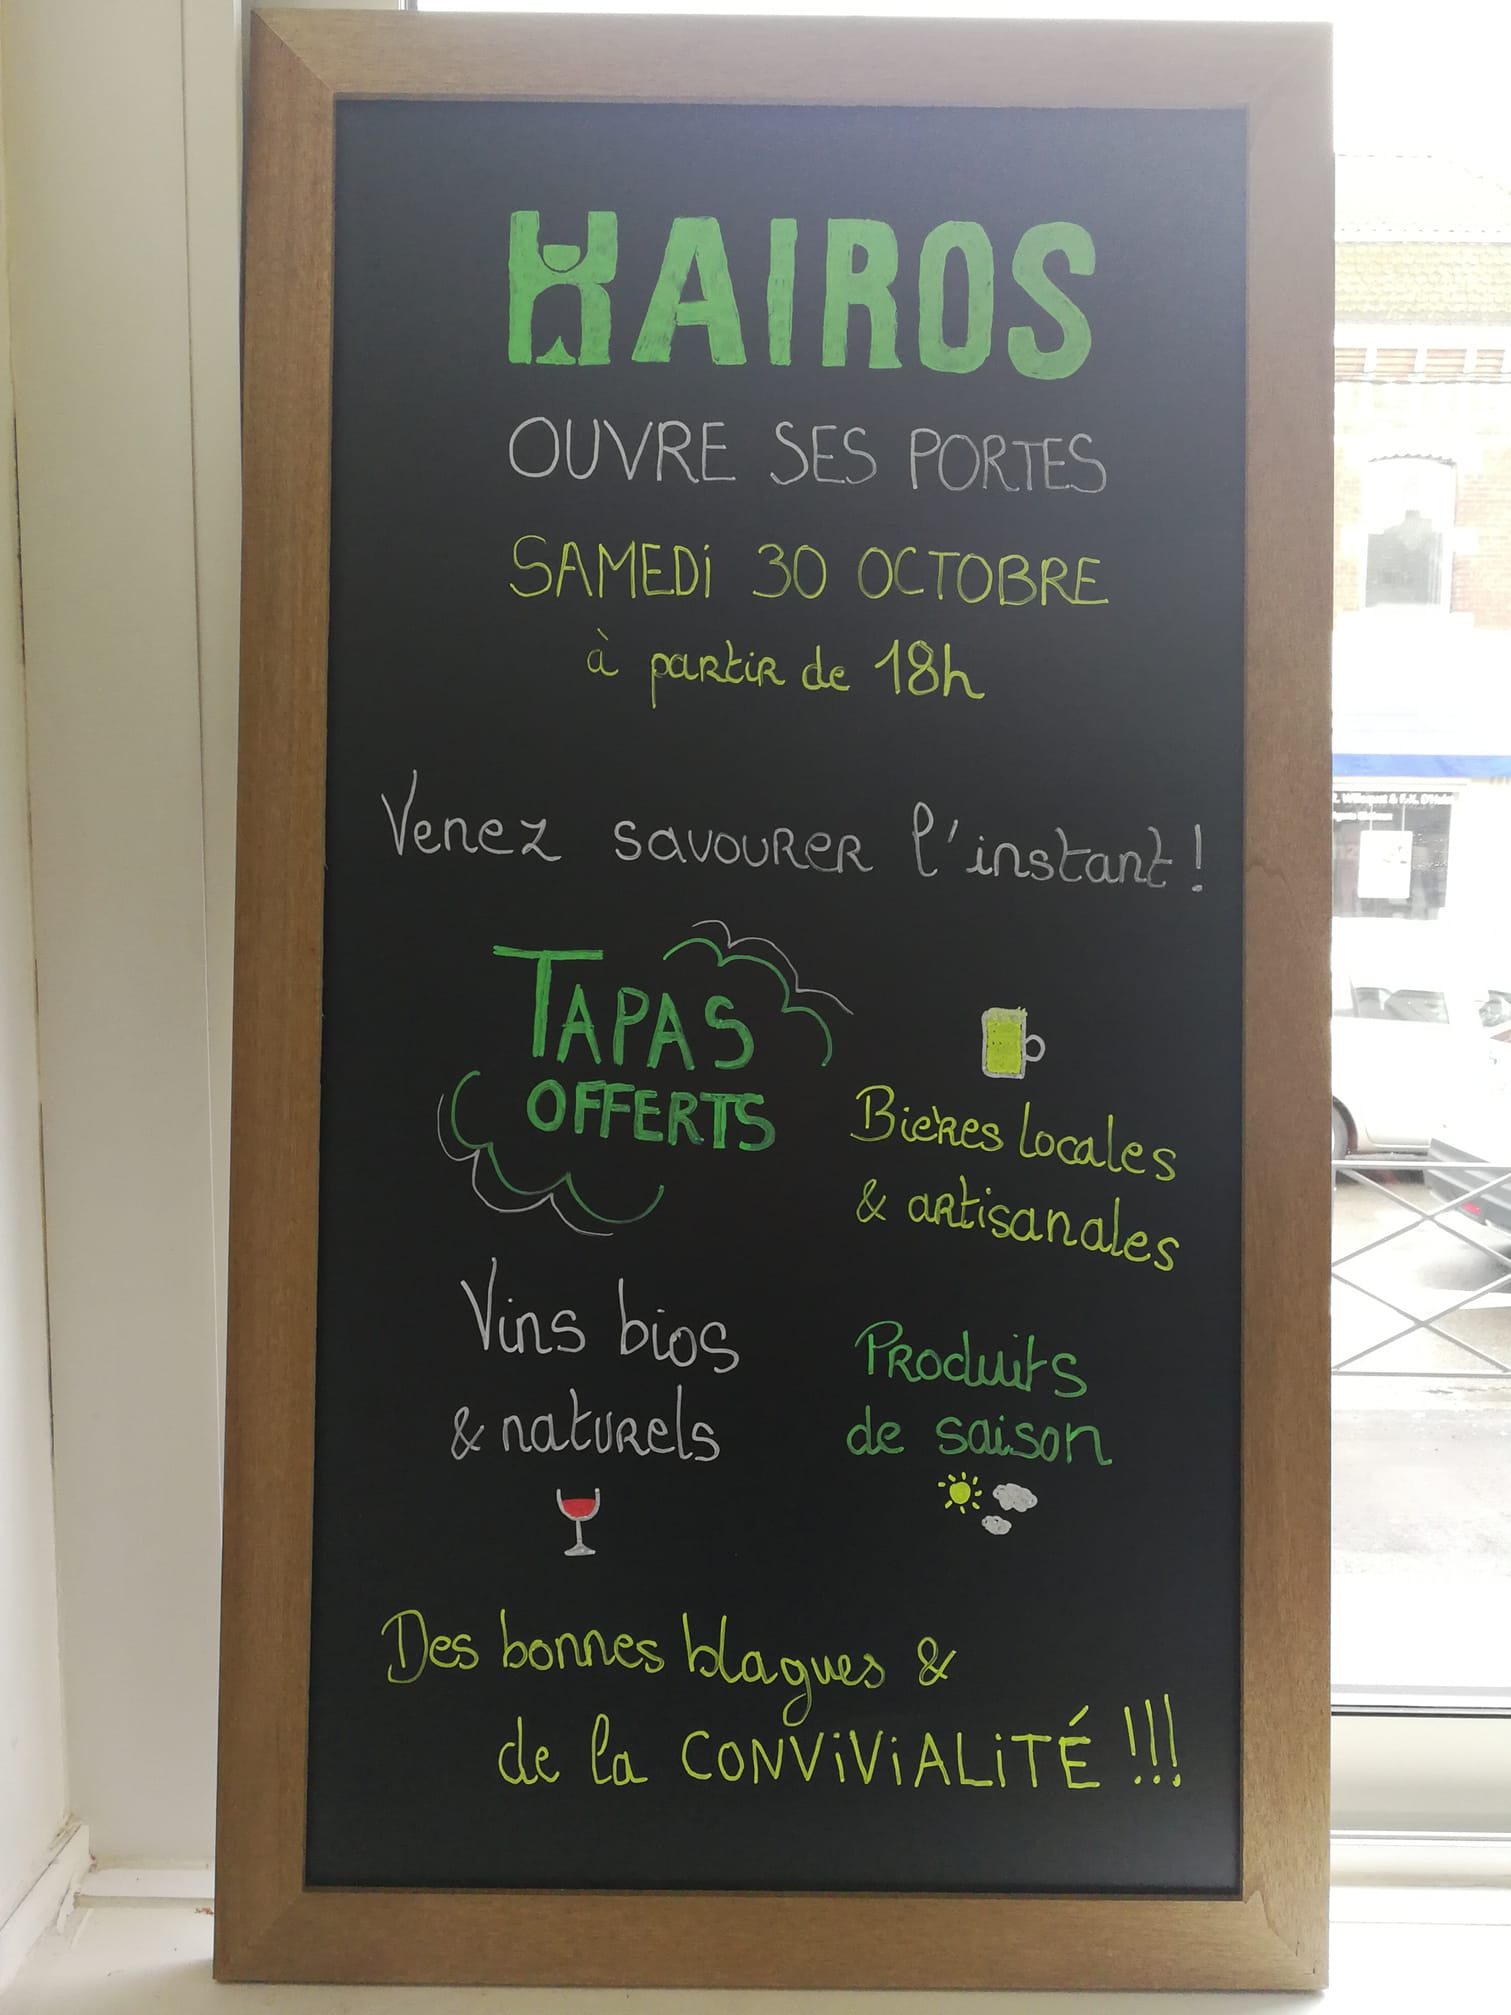 KAIROS
OUVRE SES PORTES
SAMEDI 30 OCTOBRE
à partir de 18h
Venez savourer l'instant !
TAPAS
OFFERTS
Bières locales
& artisanales
Vins bios
& naturels
Produits
de saison
Des bonnes blagues &
de la CONVIVIALITÉ !!!